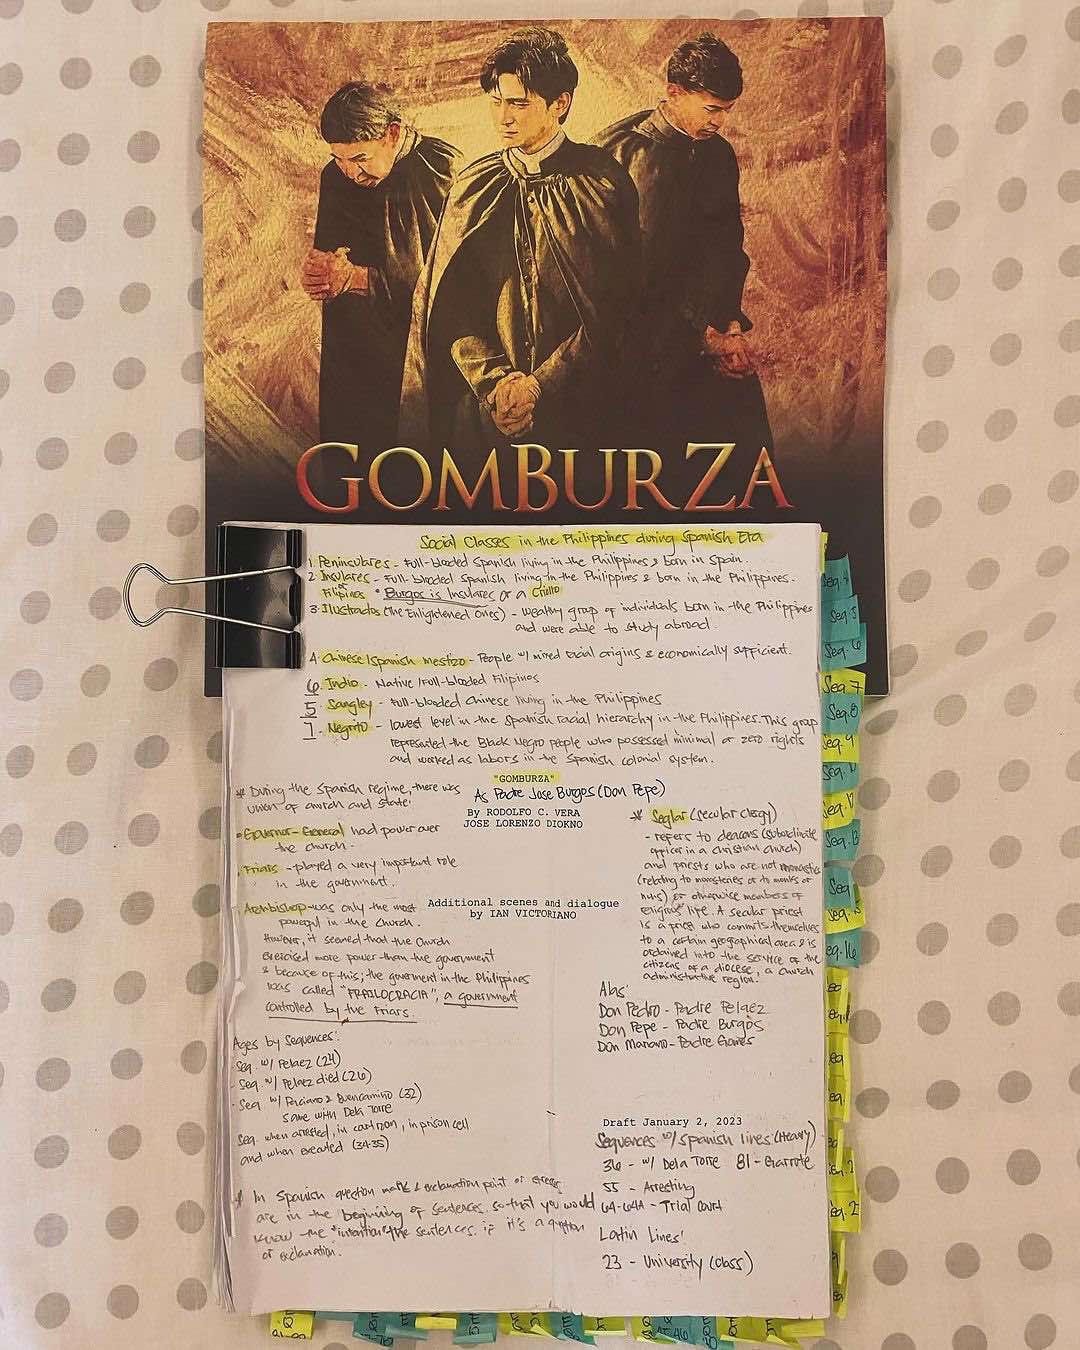 GOMBURZA
Social Classes in the Philippines during Spanish Era
1. Peninsulares - Full-blooded Spanish living in the Philippines & born in Spain.
2. Insulares - Full-blooded Spanish living in the Philippines & born in the Philippines.
or Filipinos * Burgos is Insulares or a Criollo
3. Ilustrados (The Enlightened Ones) - wealthy group of individuals born in the Philippines
and were able to study abroad.
4. Chinese/Spanish mestizo - People w/ mixed racial origins & economically sufficient.
6. Indio - Native/Full-blooded Filipinos
5 Sangley - Full-blooded Chinese living in the Philippines
7. Negrito - lowest level in the Spanish racial hierarchy in the Philippines. This group
represented the Black Negro people who possessed minimal or zero rights
and worked as labors in the Spanish colonial system.
"GOMBURZA"
As Padre Jose Burgos (Don Pepe)
By RODOLFO C. VERA
JOSE LORENZO DIOKNO
* During the Spanish Regime, there was
union of church and state.
Governor-General had power over
the church.
Friars - played a very important role
in the government.
Archbishop - was only the most
powerful in the church.
However, it seemed that the church
exercised more power than the government
& because of this, the goverment in the Philippines
was called "FRAILOCRACIA", a government
controlled by the Friars.
Additional scenes and dialogue
by IAN VICTORIANO
* Seglar (secular clergy)
- refers to deacons (subordinate
officer in a Christian church)
and priests who are not monastics
(relating to monasteries or to monks or
nuns) or otherwise members of
religious life. A secular priest
is a priest who commits themselves
to a certain geographical area & is
ordained into the service of the
citizens of a diocese, a church
administrative region.
Alas:
Don Pedro - Padre Pelaez
Don Pepe - Padre Burgos
Don Mariano - Padre Gomes
Ages by Sequences:
- Seq. w/ Pelaez (24)
- Seq. w/ Pelaez died (26)
- Seq. w/ Paciano & Buencamino (32)
same with Dela Torre
Seq. when arrested, in cartoon, in prison cell
and when executed (34-35)
* In Spanish question mark & exclamation point or stress
are in the beginning of sentences so that you would
know the "intention" of the sentences, if it's a question
or exclamation.
Draft January 2, 2023
Sequences w/ Spanish lines (Heavy)
36 - w/ Dela Torre 81 - Garrote
55 - Arresting
64-64A - Trial Court
Latin Lines:
23 - University (class)
Seq. 5
Seq. 6
Seq. 7
Seq. 8
Seq. 9
Seq.
Seq. 16